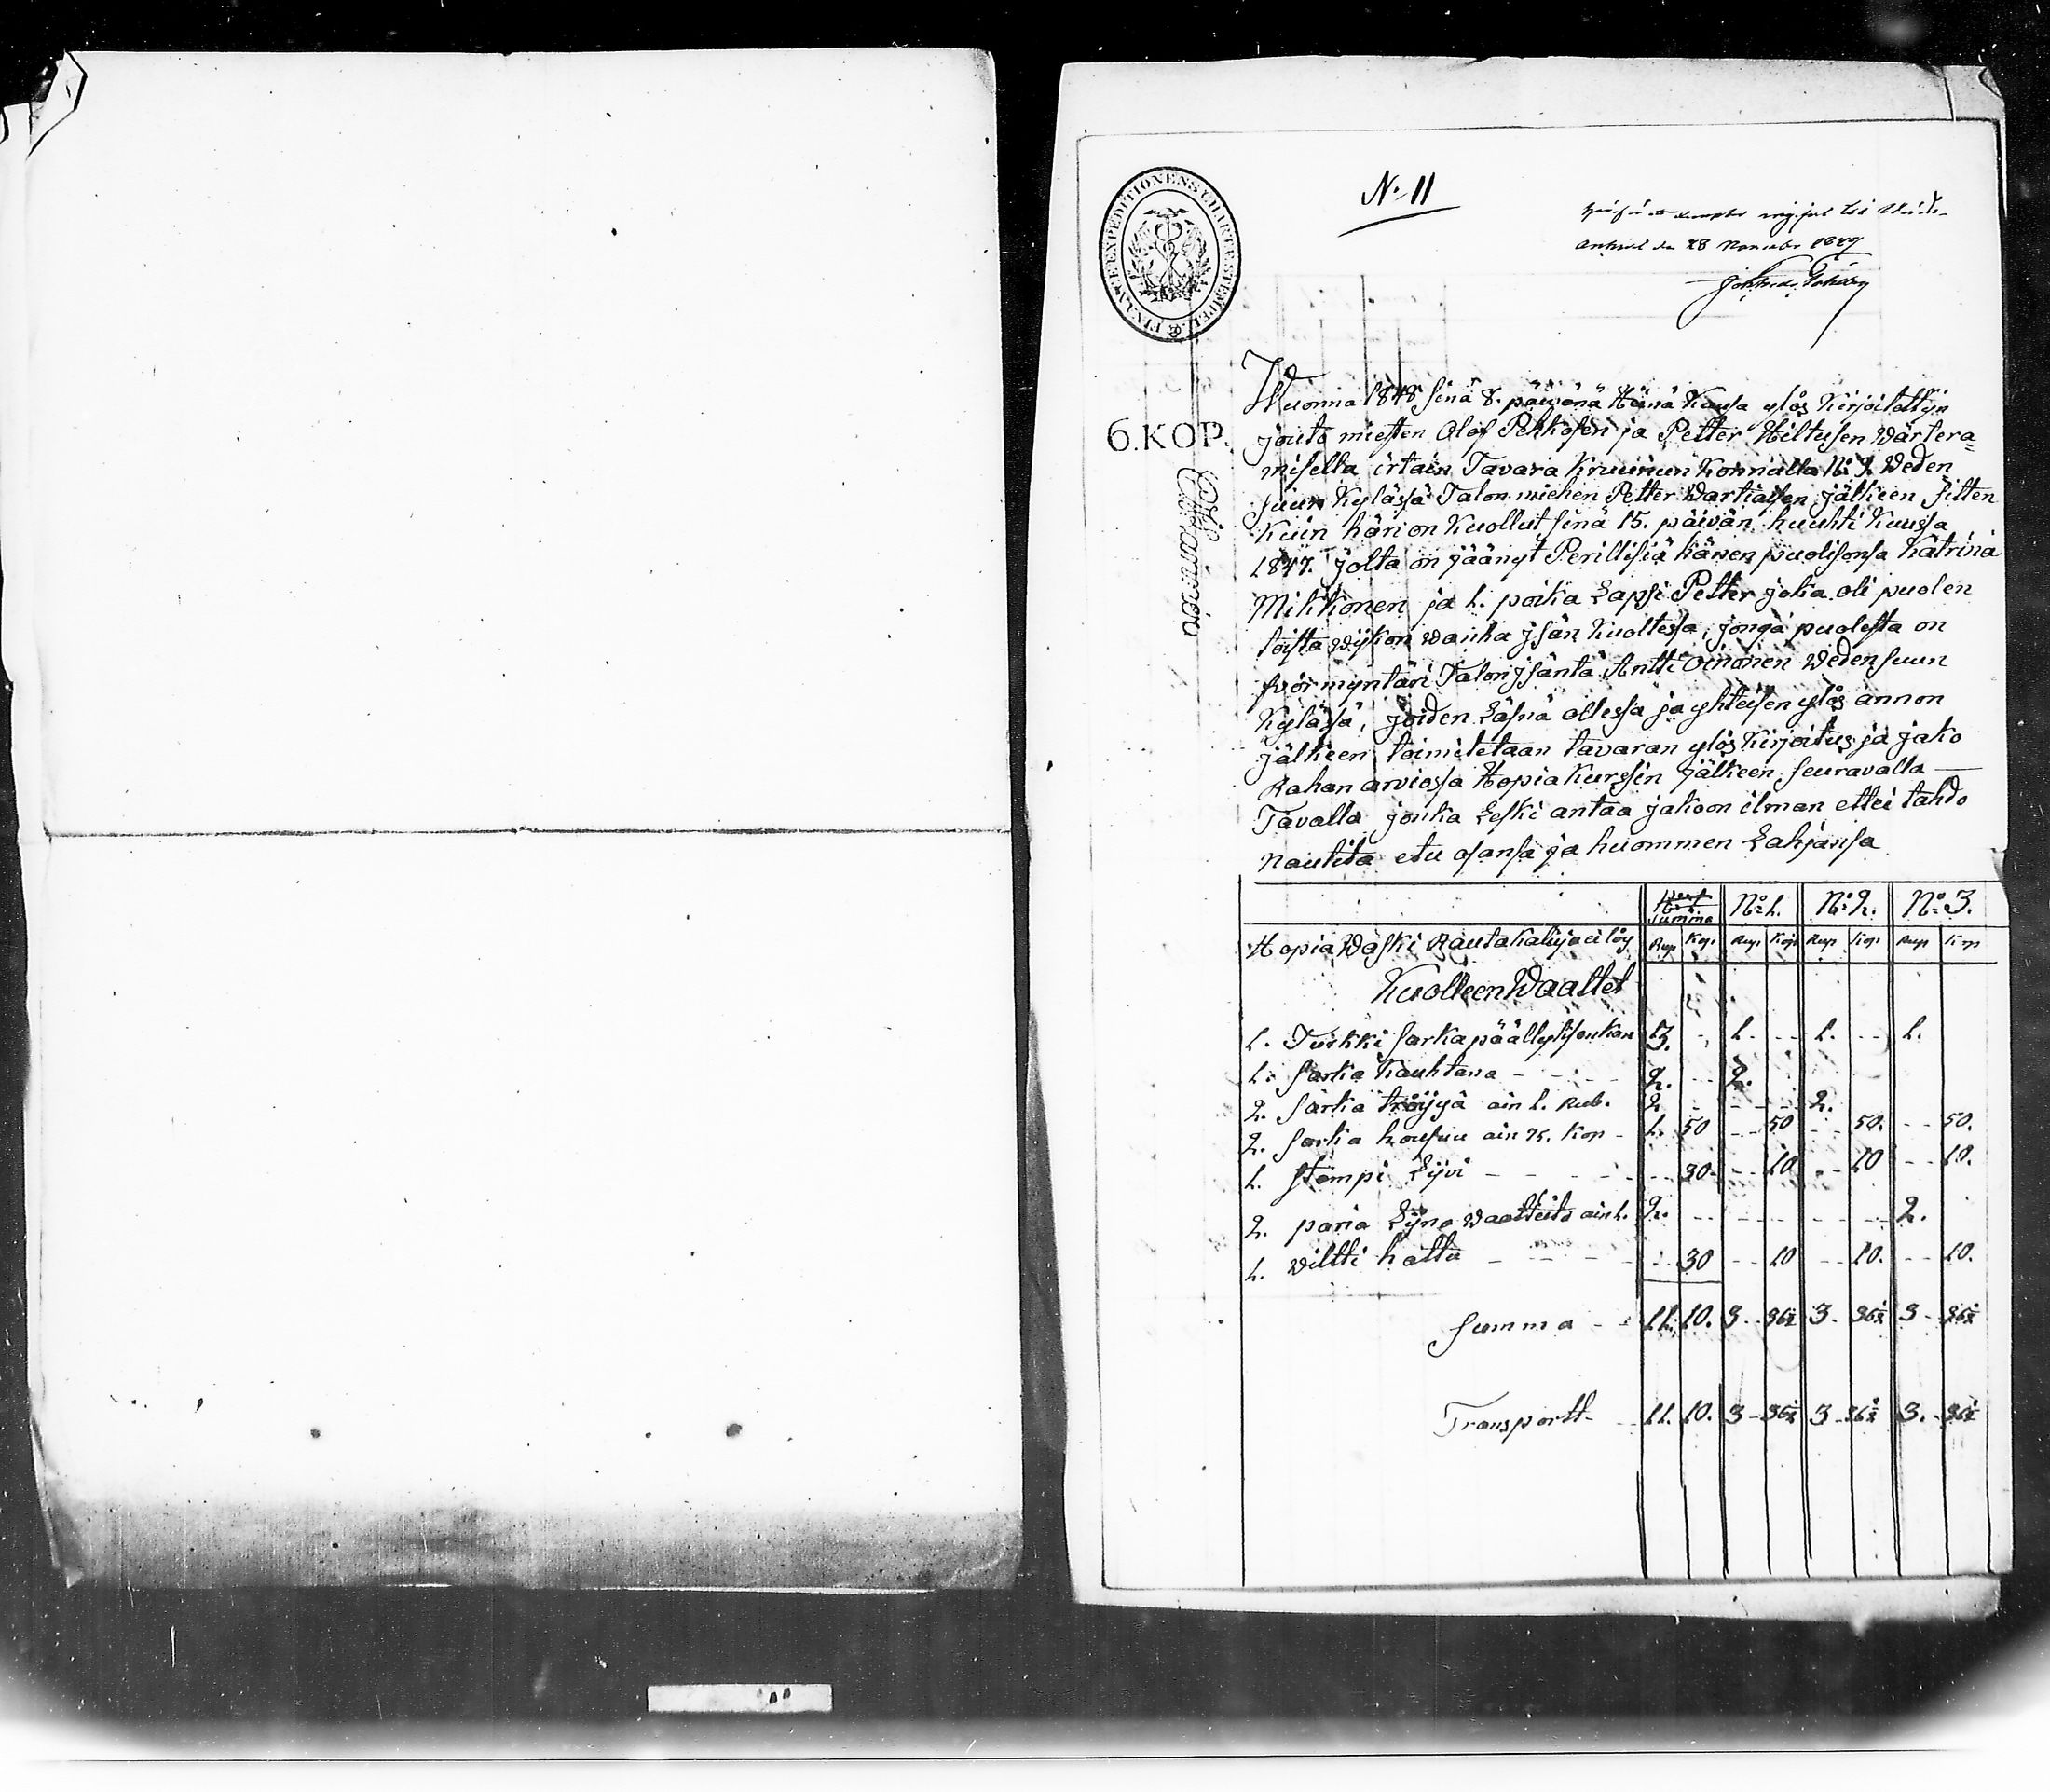 N:o 11
den 28 November 1849
FINANCE EXPEDITIONENS CHARTÆ STEMPEL
6. KOP.
Wuonna 1848 sinä 8. päivänä Heinä Kuusa ylös Kirjoitettijn
jouto miesten Olof Pehkosen ja Petter Hiltusen Wärtera=
misella irtain Tavara Kruunun Konnulla N:o 2 Weden
suun Kylässä Talon miehen Petter Wartiaisen jälkeen sitten
Kuin hän on Kuollut sinä 15. päivän huuhti Kuussa
1847. Jolta on jäänyt Perillisiä hänen puolisonsa Katrina
Mikkonen ja 1. poika Lapsi Petter joka oli puolen
toista wijkon wanha Jsän Kuoltessa, jonga puolesta on
förmyntäri Talon Jsäntä Antti Oinonen Weden suun
Kylässä, joiden Läsnä ollessa ja yhteisen ylös annon
jälkeen toimitetaan tavaran ylös Kirjoitus ja jako
Rahan arviossa Hopia Kurssin jälkeen seuravalla
Tavalla jonka Leski antaa jakoon ilman ettei tahdo
nautita etu osansa ja huommen Lahjansa
Summa N:o 1. N:o 2. N:o 3.
Hopia Waski Rautakaluja ei löy Rup Kop. Rup. Kop Rup Kop Rup Kop
Kuolleen Waattet
1. Turkki sarka päällysisen kan 3. - 1. - - 1. - - 1.
1. Sarka Kauhtana - - - - 2. - - 2.
2. Sarka tröyyä ain 1. Rub. 2 - - - - 2.
2. Sarka housuu ain 75. Kop - 1. 50 - - 50 - - 50. - - 50.
1. Stempi Lijvi - - - - - - 30 - - 10 - - 10 - - 10.
2. paria Lijna waatteita ain 1. 2. - - - - - - 2.
1. Wiltti hattu - - - - - - 30 - - 10 - - 10. - - 10.
Summa - - 11. 10. 3 - 36½ 3 - 36½ 3 - 36½
Transportt - - 11. 10. 3 - 36½ 3 - 36½ 3. - 36½